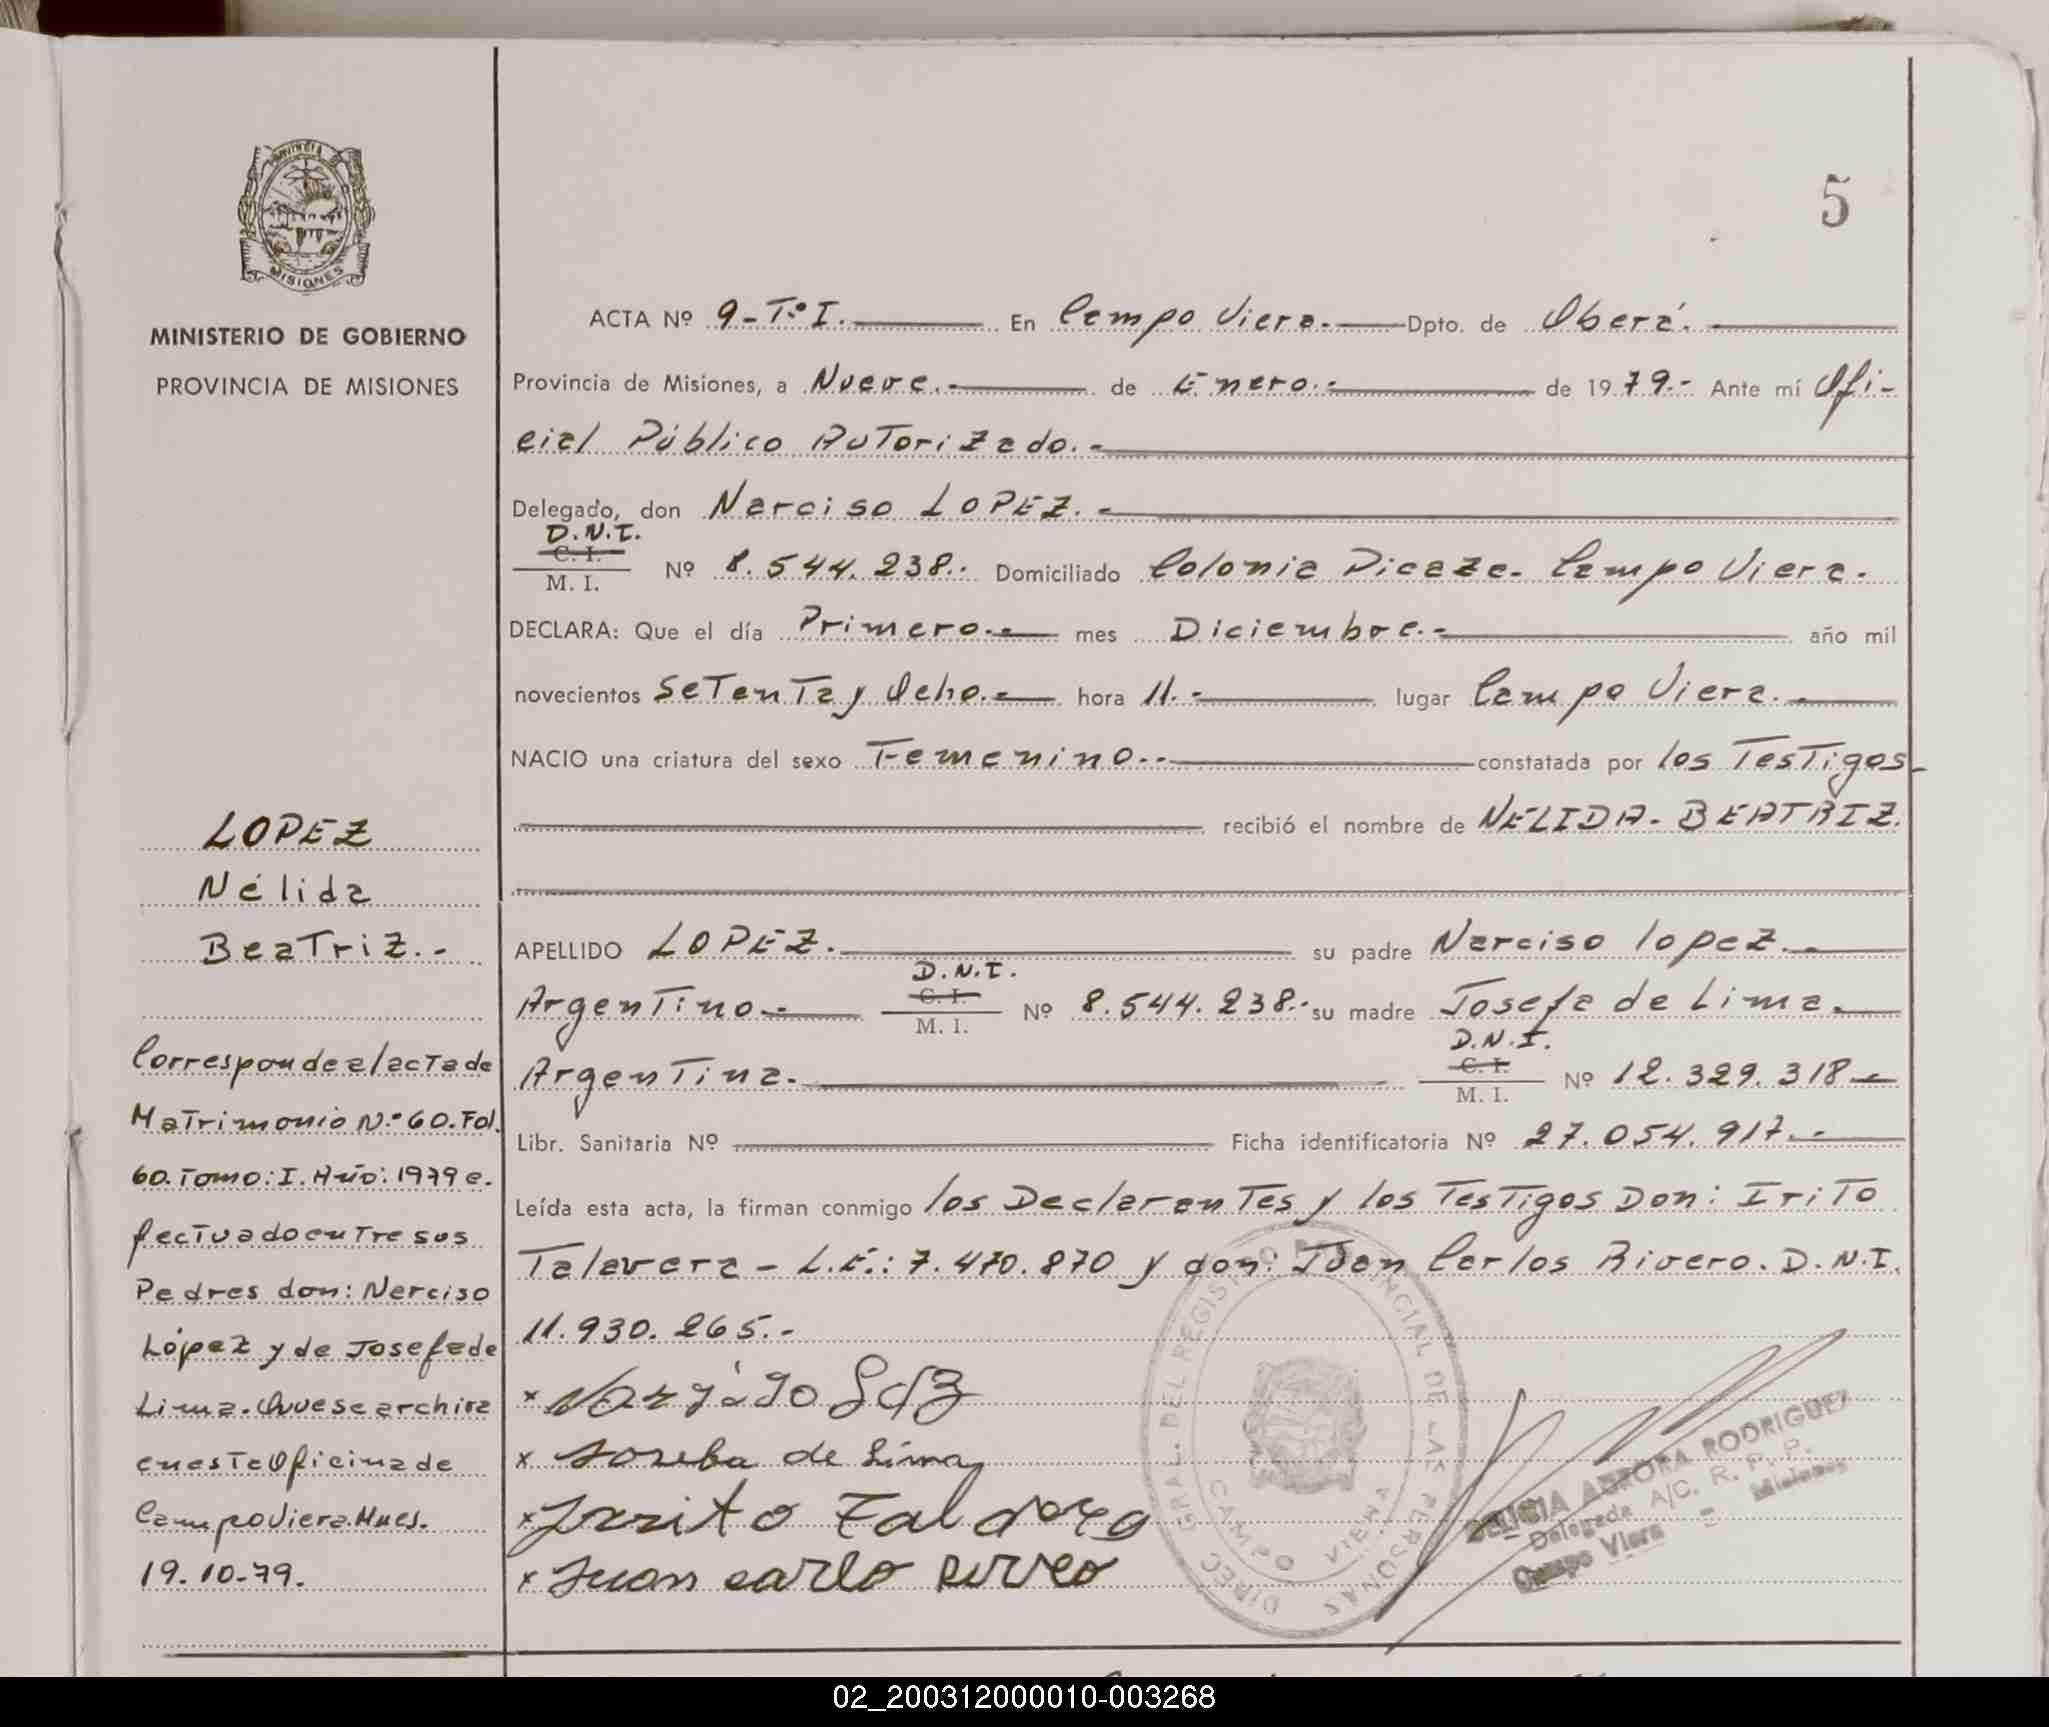 PROVINCIA DE
MISIONES
MINISTERIO DE GOBIERNO
PROVINCIA DE MISIONES
5
ACTA Nº 9-Tº I. En Campo Viera. Dpto. de Oberá.
Provincia de Misiones, a Nueve.- de Enero.- de 19 79.- Ante mí Ofi-
cial Público Autorizado.-
Delegado, don Narciso LOPEZ.-
D.N.I.
C. I.
M. I. Nº 8.544.238.- Domiciliado Colonia Picaza- Campo Viera.
DECLARA: Que el día Primero.- mes Diciembre.- año mil
novecientos Setenta y Ocho.- hora 11.- lugar Campo Viera.-
NACIO una criatura del sexo Femenino.- constatada por los Testigos-
recibió el nombre de NELIDA-BEATRIZ.
APELLIDO LOPEZ. su padre Narciso lopez.-
D.N.I.
C. I.
Argentino.- M. I. Nº 8.544.238.- su madre Josefa de Lima.
D.N.I.
C. I.
Argentina.- M. I. Nº 12.329.318-
Libr. Sanitaria Nº Ficha identificatoria Nº 27.054.917.-
Leída esta acta, la firman conmigo los Declarantes y los Testigos Don: Irito
Talavera - L.E.: 7.470.870 y don: Juan Carlos Rivero. D.N.I.
11.930.265.-
x
x de Lima
x Irrito
x Juan carlo
LOPEZ
Nélida
Beatriz.-
Corresponde al acta de
Matrimonio N.º 60. Fol.
60. Tomo: I. Año: 1979 e.
fectuado entre sus
Padres don: Narciso
López y de Josefa de
Lima. Que se archiva
en esta Oficina de
Campo Viera. Mnes.
19.10-79.
DIREC. GRAL. DEL REGISTRO PROVINCIAL DE LAS PERSONAS
CAMPO VIERA
DELICIA AURORA RODRIGUEZ
Delegada A/C. R. P. P.
Campo Viera - Misiones
02_200312000010-003268